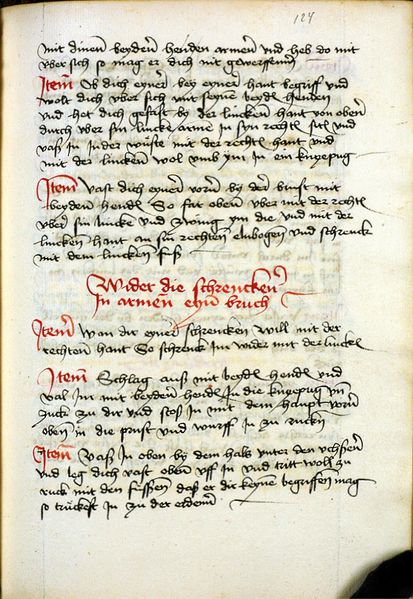 124
mit dinen beyden henden armen vnd heb do mit
vber sich so mag er dich nit gewerffenn
Item Ob dich eyner bey eyner hant begriff vnd
wolt dich vber sich mit seyne beydn henden
vnd het dich gefast by der lincken hant von oben
durch vber sin lincke arme in syn rechte vnd
vaß in in der mitte mit der rechten hant vnd
mit der lincken wol vmb ym in ein kniepug
Item Vast dich eyner vorn by der brust mit
beyden hendn So far oben vber mit der rechtn
vber sin lincke vnd zwing ym die vnd mit der
lincken hant an sin rechten elnbogen vnd schrenck
mit dem lincken fuß
Wider die schrencken
in armen eyn bruch
Item Wan dir eyner schrencken will mit der
rechten hant So schrenck im wider mit der linckn
Item Schlag auß mit beydn hendn vnd
val im mit beyden hendn in die kniepug vnd
zuck zu dir vnd stos in mit dem haupt vorn
oben in die prust vnd wurff in zu rucken
Item Vaß in oben by dem hals vnter den vchsenn
vnd leg dich vast oben vff in vnd tritt woll zu
ruck mit den fussen das er dir keyne begriffen mag
so truckest in zu der erdenn